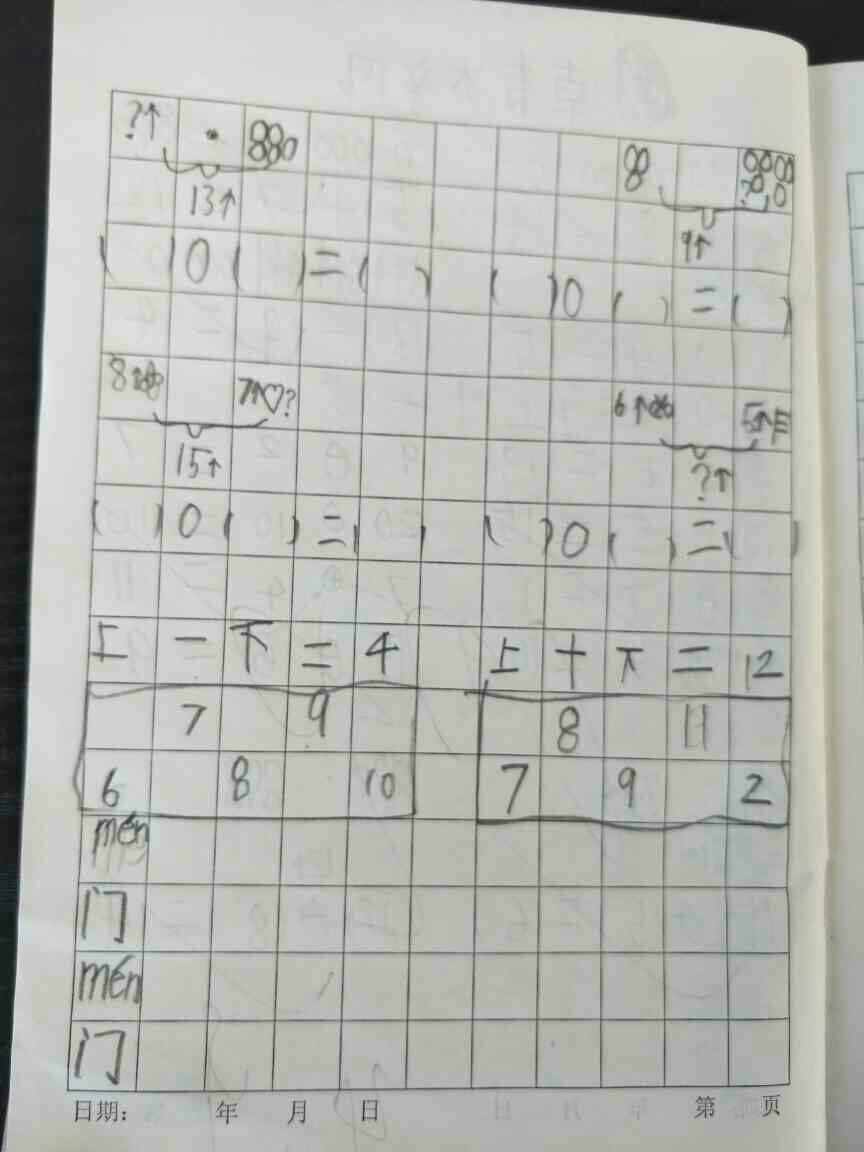 ?个
13个 9个
( )○( )=( ) ( )○( )=( )
8个 7个♡? 6个 5个
15个 ?个
( )○( )=( ) ( )○( )=( )
上 一 下 = 4 上 十 下 = 12
7 9 8 11
6 8 10 7 9 2
mén
门
mén
门
日期: 年 月 日 第 页